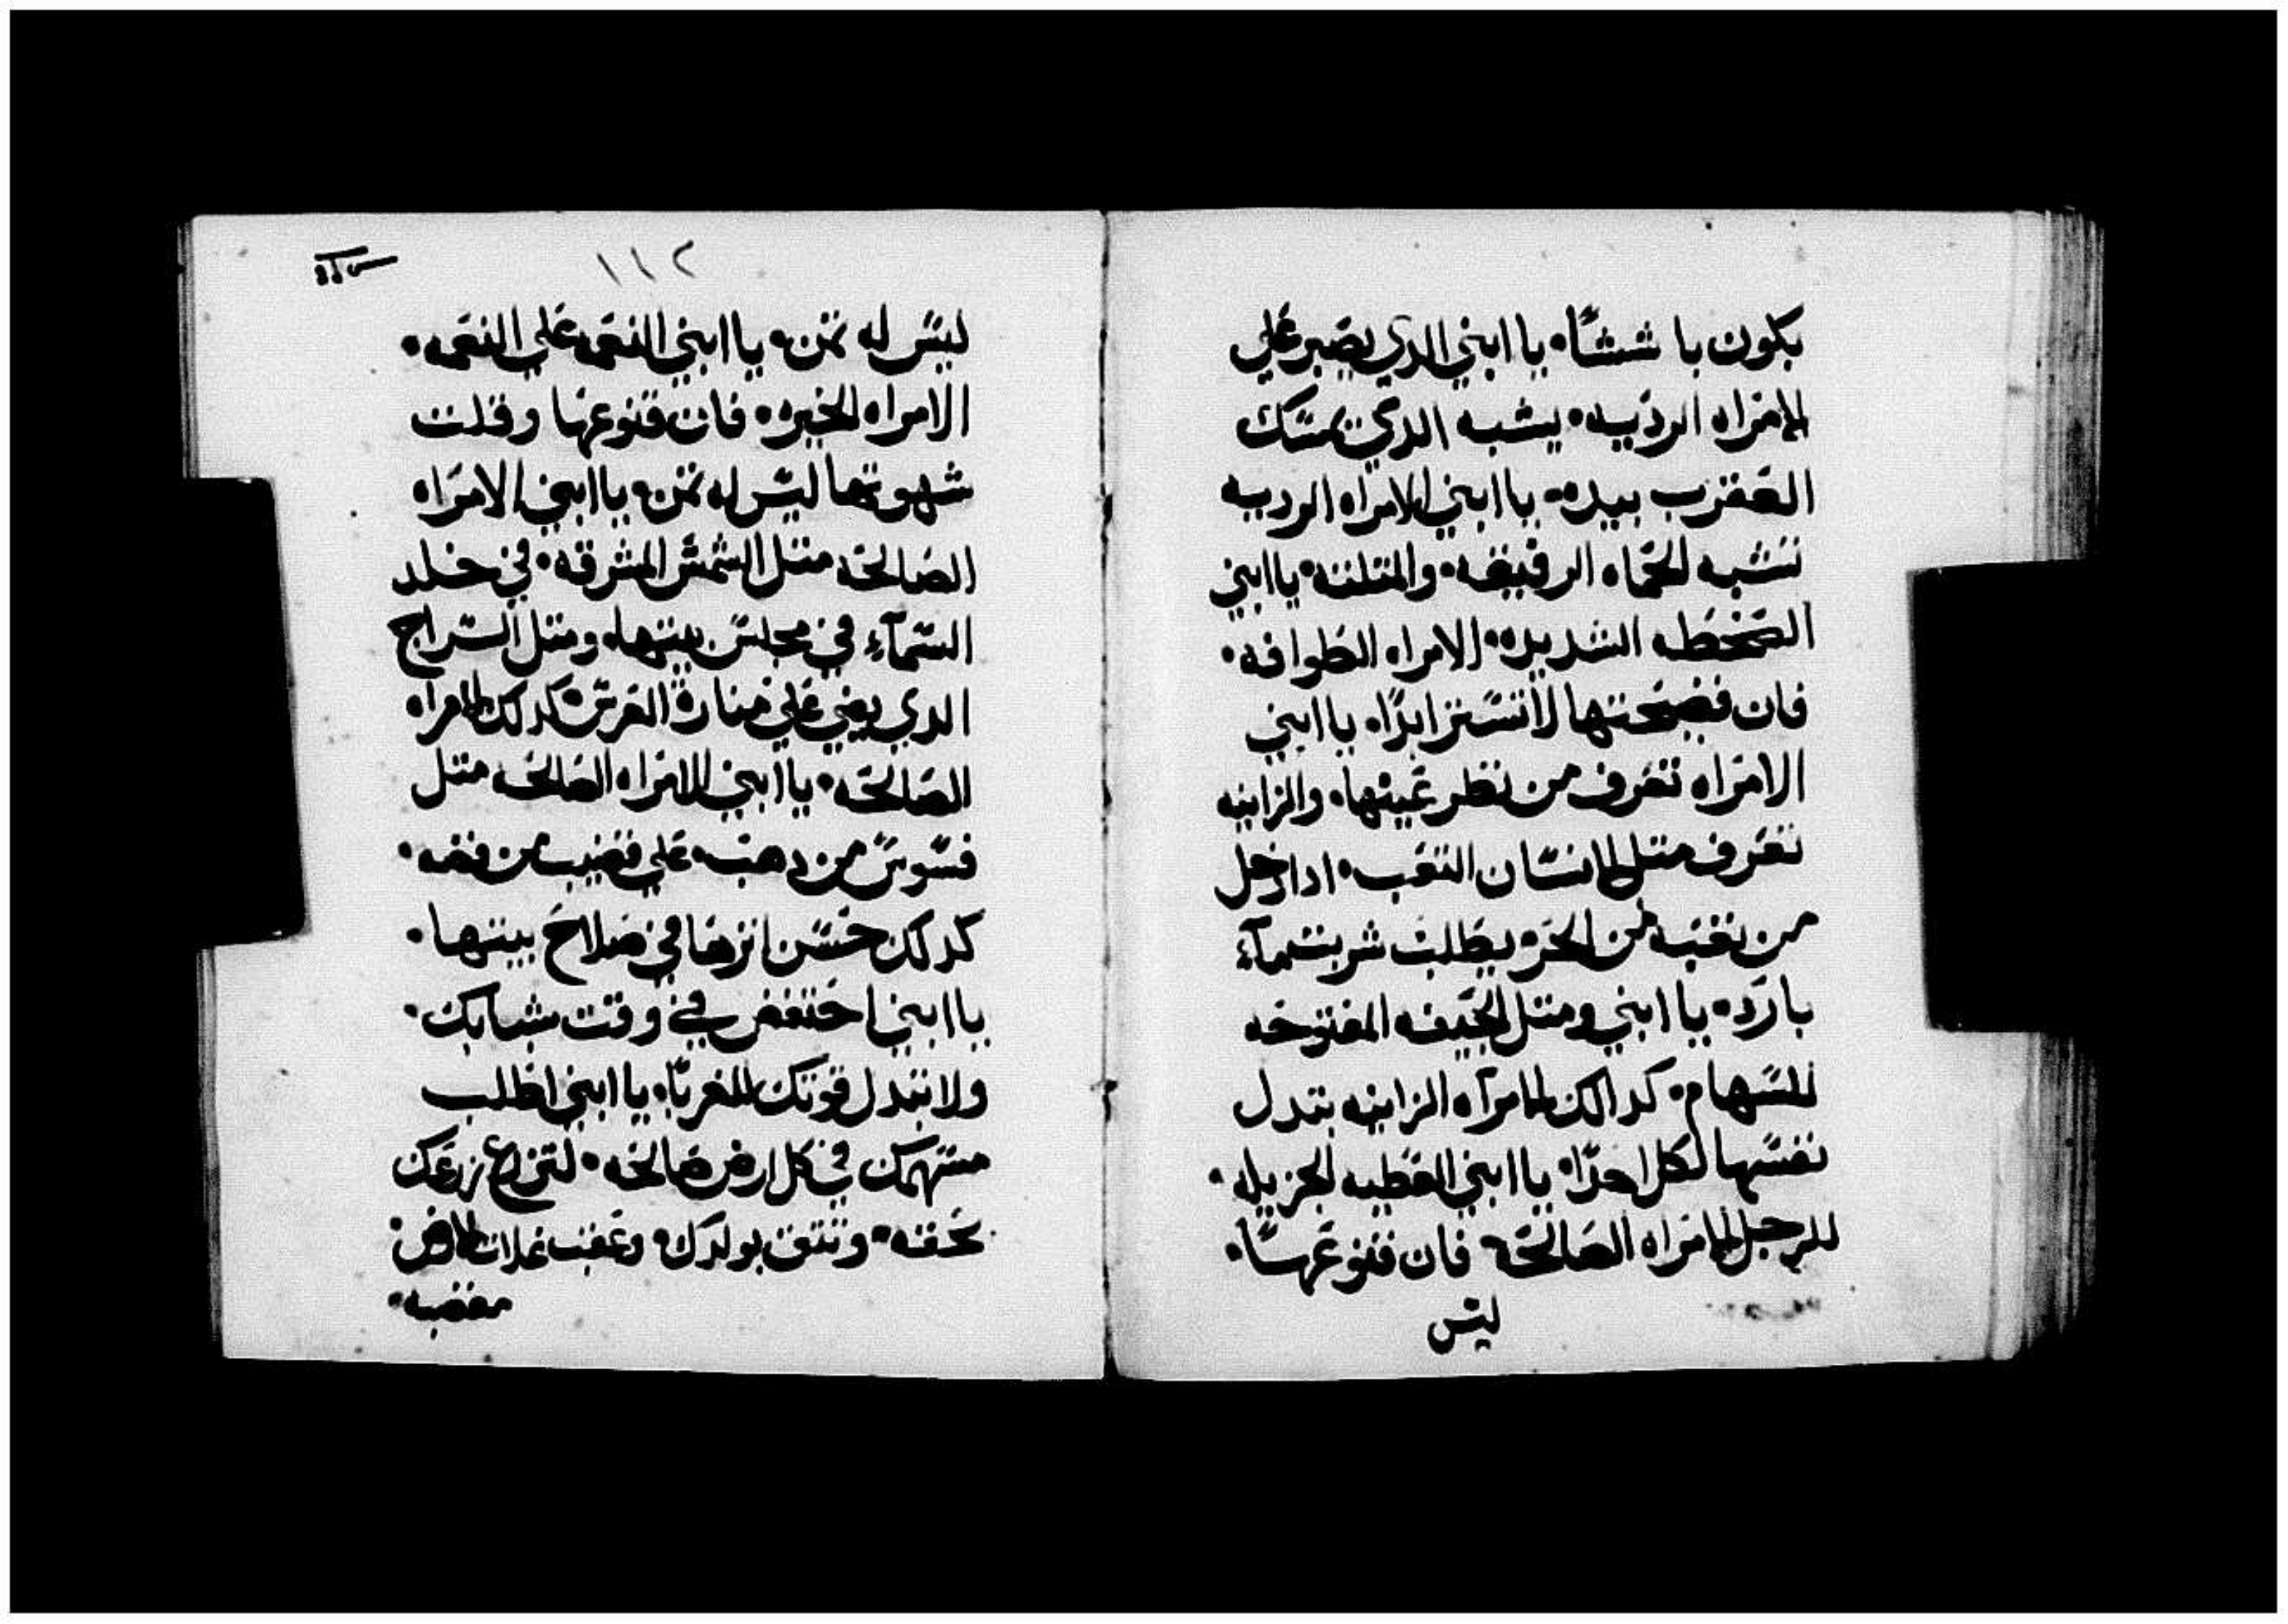 يكون باششًا۰ يا ابني الدي يصبر علي
الامراه الرديه۰ يشبه الدي يمسك
العقرب بيده۰ يا ابني الامراه الرديه
تشبه الحماه الرقيقه۰ والمتلته۰ يا ابني
السخطه الشديده۰ الامراه الطوافه۰
فان فضيحتها لا تستتر ابدًا۰ يا ابني
الامراه تعرف من نظر عينها۰ والزانيه
تعرف متل الانسان التعب۰ ادا دخل
من تعبه من الحر۰ يطلب شربت مآء
بارد۰ يا ابني ومتل الجيفه المفتوحه
للسهام۰ كدالك الامرآه الزانيه بتدل
نفسها لكل احدًا۰ يا ابني العطيه الجزيله۰
للرجل الامراه الصالحه۰ فان قنوعهًا۰
ليس
١١٢
ليس له تمن۰ يا ابني النعمه علي النعمه۰
الامراه الخيره۰ فان قنوعها وقلت
شهوتها ليس له تمن۰ يا ابني الامراه
الصالحه متل الشمس المشرقه۰ في خلد
السمآء في مجلس بيتها۰ ومتل السراج
الدي يضي علي منارة العرش۰ كدلك الامراه
الصالحه۰ يا ابني الامراه الصالحه متل
فسوس من دهب۰ علي قضيب من فضه۰
كدلك حسن انزها في صلاح بيتها۰
يا ابني احتفض في وقت شبابك۰
ولا تبدل قوتك للغربآ۰ يا ابني اطلب
مستهمك في كل ارض صالحه۰ لتزرع زرعك
بحقه۰ وتتق بولدك۰ وعقب غلات الارض
مغضبه۰